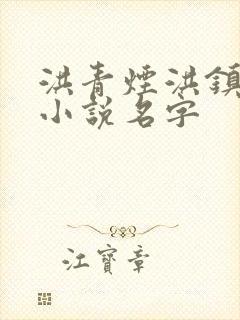 洪青煙洪鎮
小說名字
江寶章